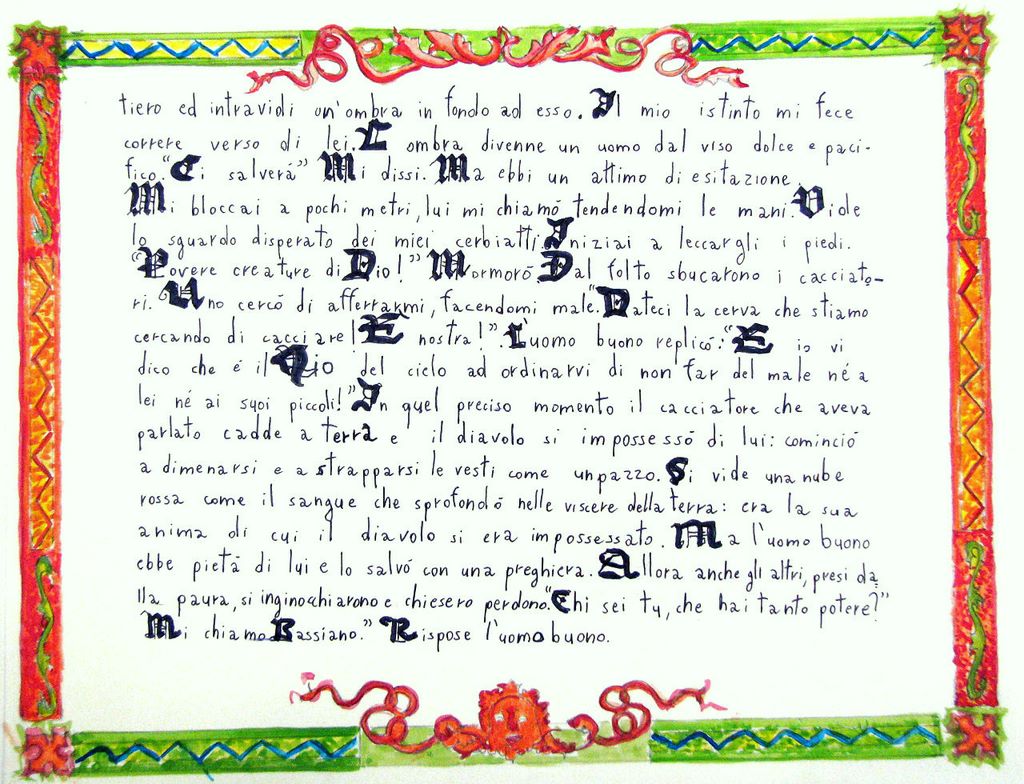 tiero ed intravidi un'ombra in fondo ad esso. Il mio istinto mi fece
correre verso di lei. L'ombra divenne un uomo dal viso dolce e paci-
fico. "Ci salverá" Mi dissi. Ma ebbi un attimo di esitazione.
Mi bloccai a pochi metri, lui mi chiamó tendendomi le mani. Vide
lo sguardo disperato dei miei cerbiatti. Iniziai a leccargli i piedi.
"Povere creature di Dio!" Mormoró. Dal folto sbucarono i cacciato-
ri. Uno cercó di afferrarmi, facendomi male. "Dateci la cerva che stiamo
cercando di cacciare! E nostra!". L'uomo buono replicó: "E io vi
dico che é il Dio del cielo ad ordinarvi di non far del male né a
lei né ai suoi piccoli!" In quel preciso momento il cacciatore che aveva
parlato cadde a terra e il diavolo si impossessó di lui: cominció
a dimenarsi e a strapparsi le vesti come un pazzo. Si vide una nube
rossa come il sangue che sprofondó nelle viscere della terra: era la sua
anima di cui il diavolo si era impossessato. Ma l'uomo buono
ebbe pietá di lui e lo salvó con una preghiera. Allora anche gli altri, presi da
lla paura, si inginocchiarono e chiesero perdono. "Chi sei tu, che hai tanto potere?"
Mi chiamo Bassiano." Rispose l'uomo buono.